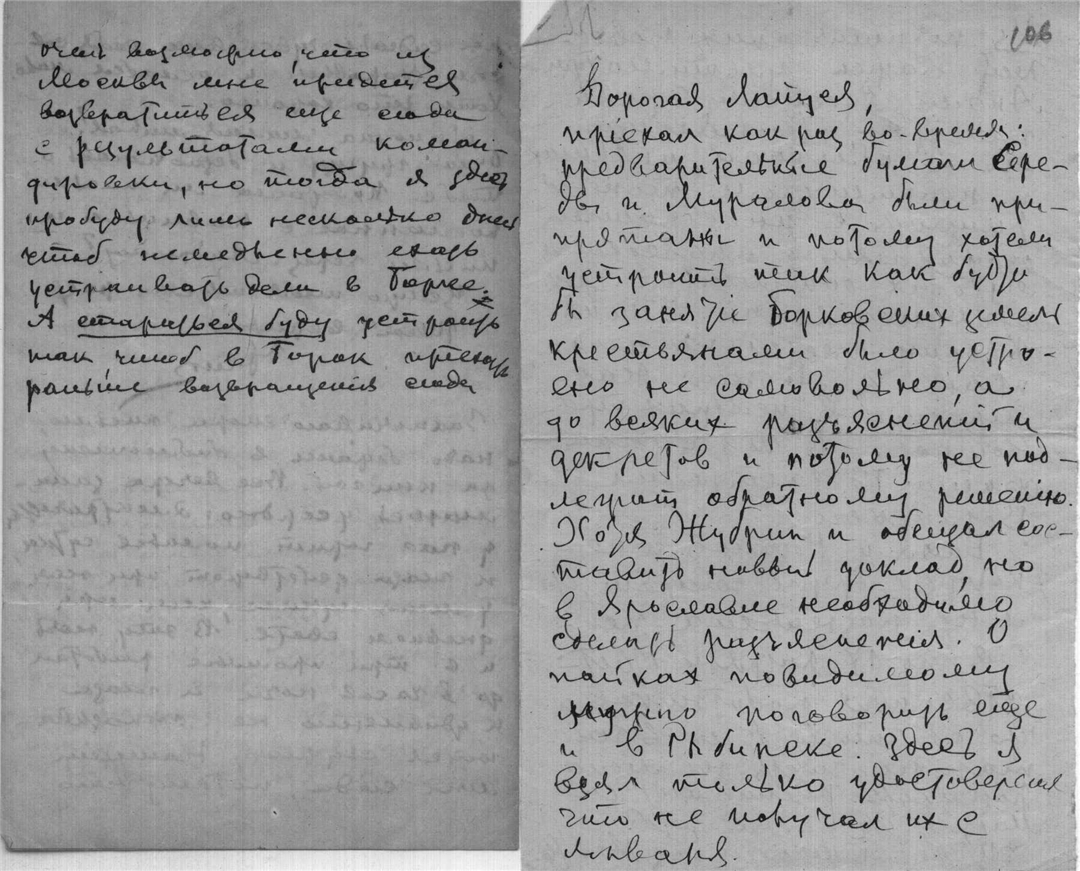 очень возможно, что из
Москвы мне придется
возвратиться еще сюда
с результатами коман-
дировки, но тогда я здесь
пробуду лишь несколько дней
чтоб немедленно ехать
устраивать дела в Борке.
А стараться буду устроить
так чтоб в Борок приехать
раньше возвращения сюда
106
Дорогая
приехал как раз во-время:
предварительные бумаги Сере-
ды и Муралова были при-
прятаны и потому хотели
устроить так как будто
бы занятие Борковских земель
крестьянами было устро-
ено не самовольно, а
до всяких разъяснений и
декретов и потому не под-
лежит обратному решению.
Хотя Жубрин и обещал сос-
тавить новый доклад, но
в Ярославле необходимо
сделать разъяснения. О
пайках повидимому
нужно поговорить еще
и в Рыбинске. Здесь я
взял только удостоверения
что не получал их с
января.